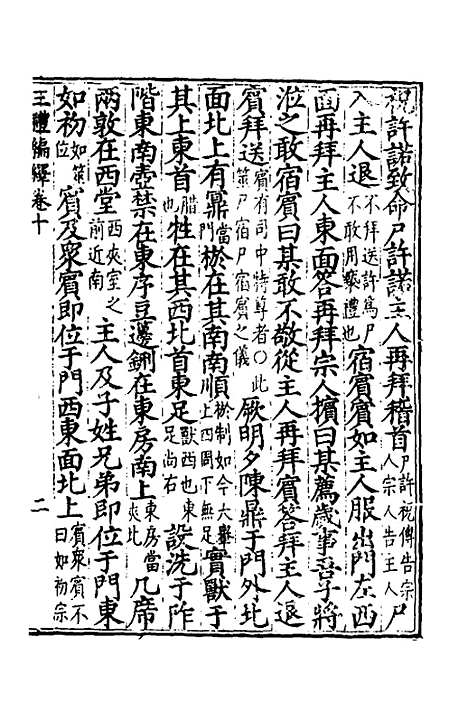 祝許諾致命尸許諾主人再拜稽首尸許祝傳告宗人宗人告主人尸
入主人退不拜送許為尸不敢用褻禮也宿賓賓如主人服出門左西
面再拜主人東面答再拜宗人擯曰某薦歲事吾子將
涖之敢宿賓曰某敢不敬從主人再拜賓答拜主人退
賓拜送賓有司中特尊者〇此筮尸宿尸宿賓之儀厥明夕陳鼎于門外北
面北上有鼏當門棜在其南南順棜制如今大轝上四周下無足實獸于
其上東首腊也牲在其西北首東足獸西也東足尚右設洗于阼
階東南壺禁在東序豆籩鉶在東房南上東房當夾北几席
兩敦在西堂西夾室之前近南主人及子姓兄弟即位于門東
如初如筮位賓及眾賓即位于門西東面北上賓眾賓不曰如初宗
三禮編繹卷十
二